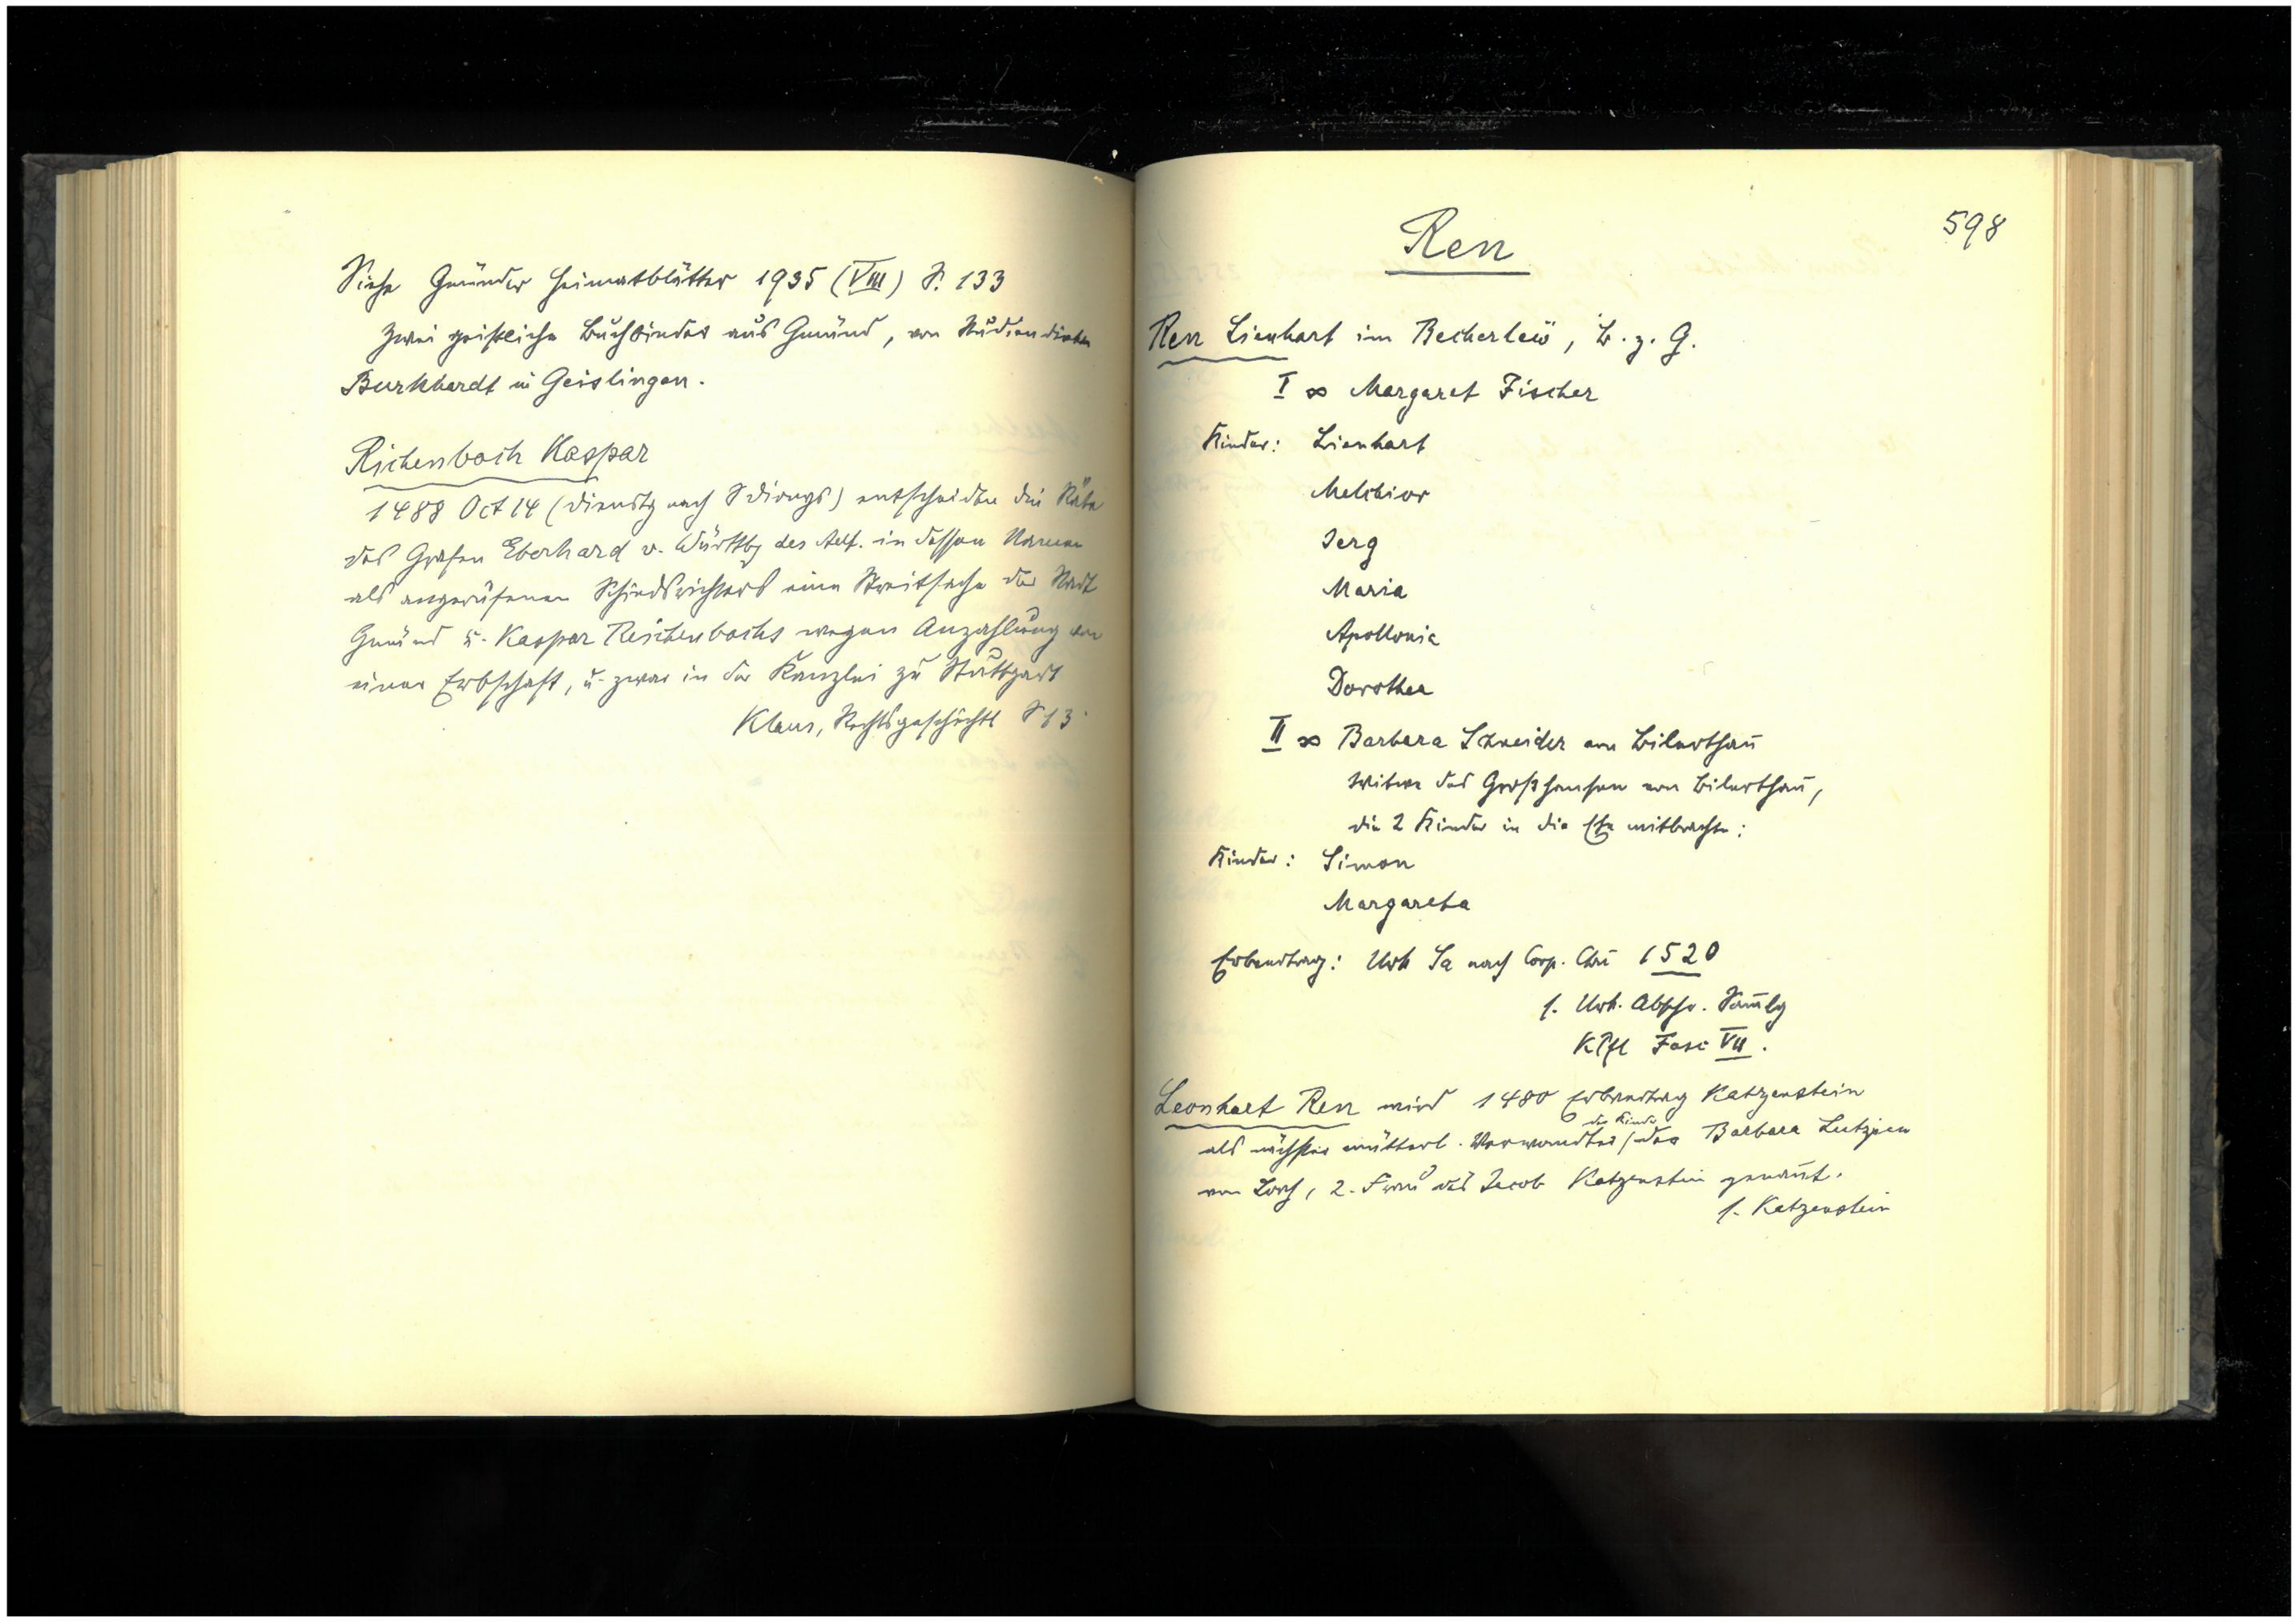 Siehe Gmünder Heimatblätter 1935 (VIII) S. 133
Zwei geistliche Buchbinder aus Gmünd, von Studiendirektor
Burkhardt in Geislingen.
Richenbach Kaspar
1488 Oct 14 (Dienstg nach S Dionys) entscheiden die Räte
des Grafen Eberhard v. Württbg des Aelt. in dessen Namen
als angerufenen Schiedsrichters eine Streitsache der Stadt
Gmünd u. Kaspar Reichenbachs wegen Anzahlung von
einer Erbschaft, u. zwar in der Kanzlei zu Stuttgart
Klaus, Rechtsgeschichtl S 13
598
Ren
Ren Lienhart im Becherlew, B. z. G.
I ∞ Margaret Fischer
Kinder: Lienhart
Melchior
Jerg
Maria
Apollonia
Dorothea
II ∞ Barbara Schneider von
Witwe des Großhansen von
die 2 Kinder in die Ehe mitbrachte:
Kinder: Simon
Margareta
Erbvertrag: Urk Sa nach Corp. Chri 1520
s. Urk. Abschr. Samlg
Fasc VII.
Leonhart Ren wird 1480 Erbvertrag Katzenstein
als nächster mütterl. Verwandter / der Kinder der Barbara
von Lorch, 2. Frau des Jacob Katzenstein genannt.
s. Katzenstein